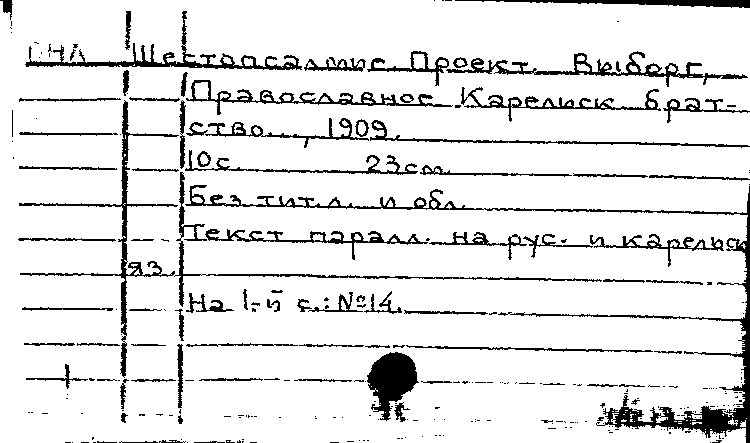 Шестопсалмие. Проект. Выборг,
Православное Карельск. брат-
ство..., 1909.
10с. 23см.
Без тит.л. и обл.
Текст паралл. на рус. и карельск
яз.
На 1-й с.: №14.